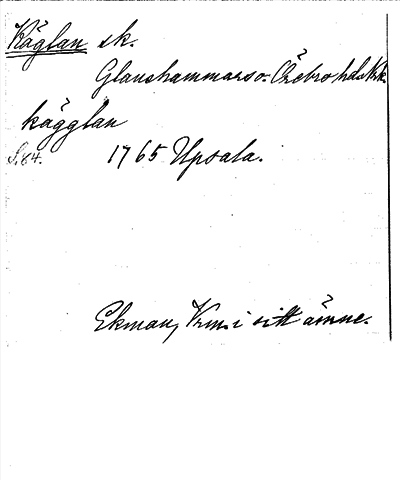 Käglan sk.
Glanshammars o. Örebro hds Nk.
kägglan
S. 84. 1765 Upsala.
Ekman, Vrm. i sitt ämne.